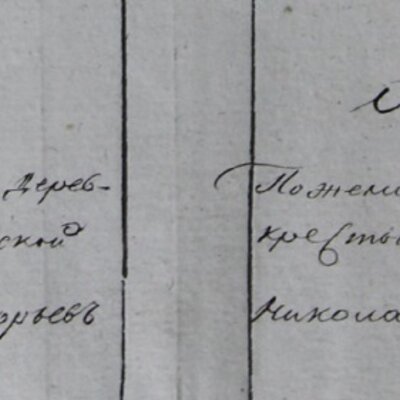 Дерев-
ской
орьевъ
Пожеми
кресть
Никола